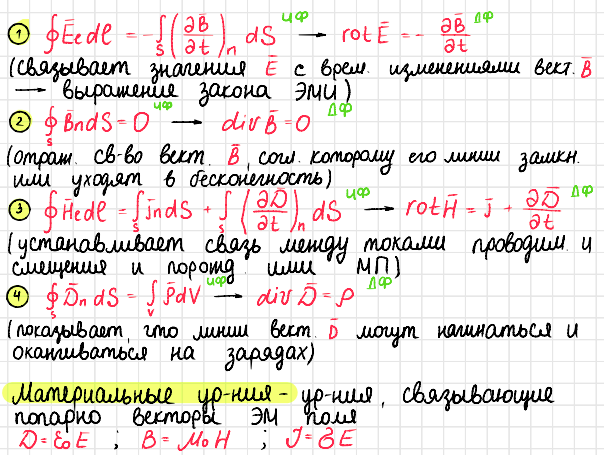 ① ∮E̅ℓdℓ = -∫S(∂B̅/∂t)n dS ИФ → rotE̅ = - ∂B̅/∂t ДФ
(связывает значения E̅ с врем. изменениями вект. B̅
→ выражение закона ЭМИ)
② ∮S B̅ndS = 0 ИФ → divB̅ = 0 ДФ
(отраж. св-во вект. B̅, согл. которому его линии замкн.
или уходят в бесконечность)
③ ∮H̅ℓdℓ = ∫S j̅ndS + ∫S (∂D̅/∂t)n dS ИФ → rotH̅ = j̅ + ∂D̅/∂t ДФ
(устанавливает связь между токами проводим. и
смещения и порожд. ими МП)
④ ∮S D̅n dS = ∫V ρ̅dV ИФ → div D̅ = ρ ДФ
(показывает, что линии вект. D̅ могут начинаться и
оканчиваться на зарядах)
Материальные ур-ния - ур-ния, связывающие
попарно векторы ЭМ поля
D = ε₀E ; B = μ₀H ; J = σE